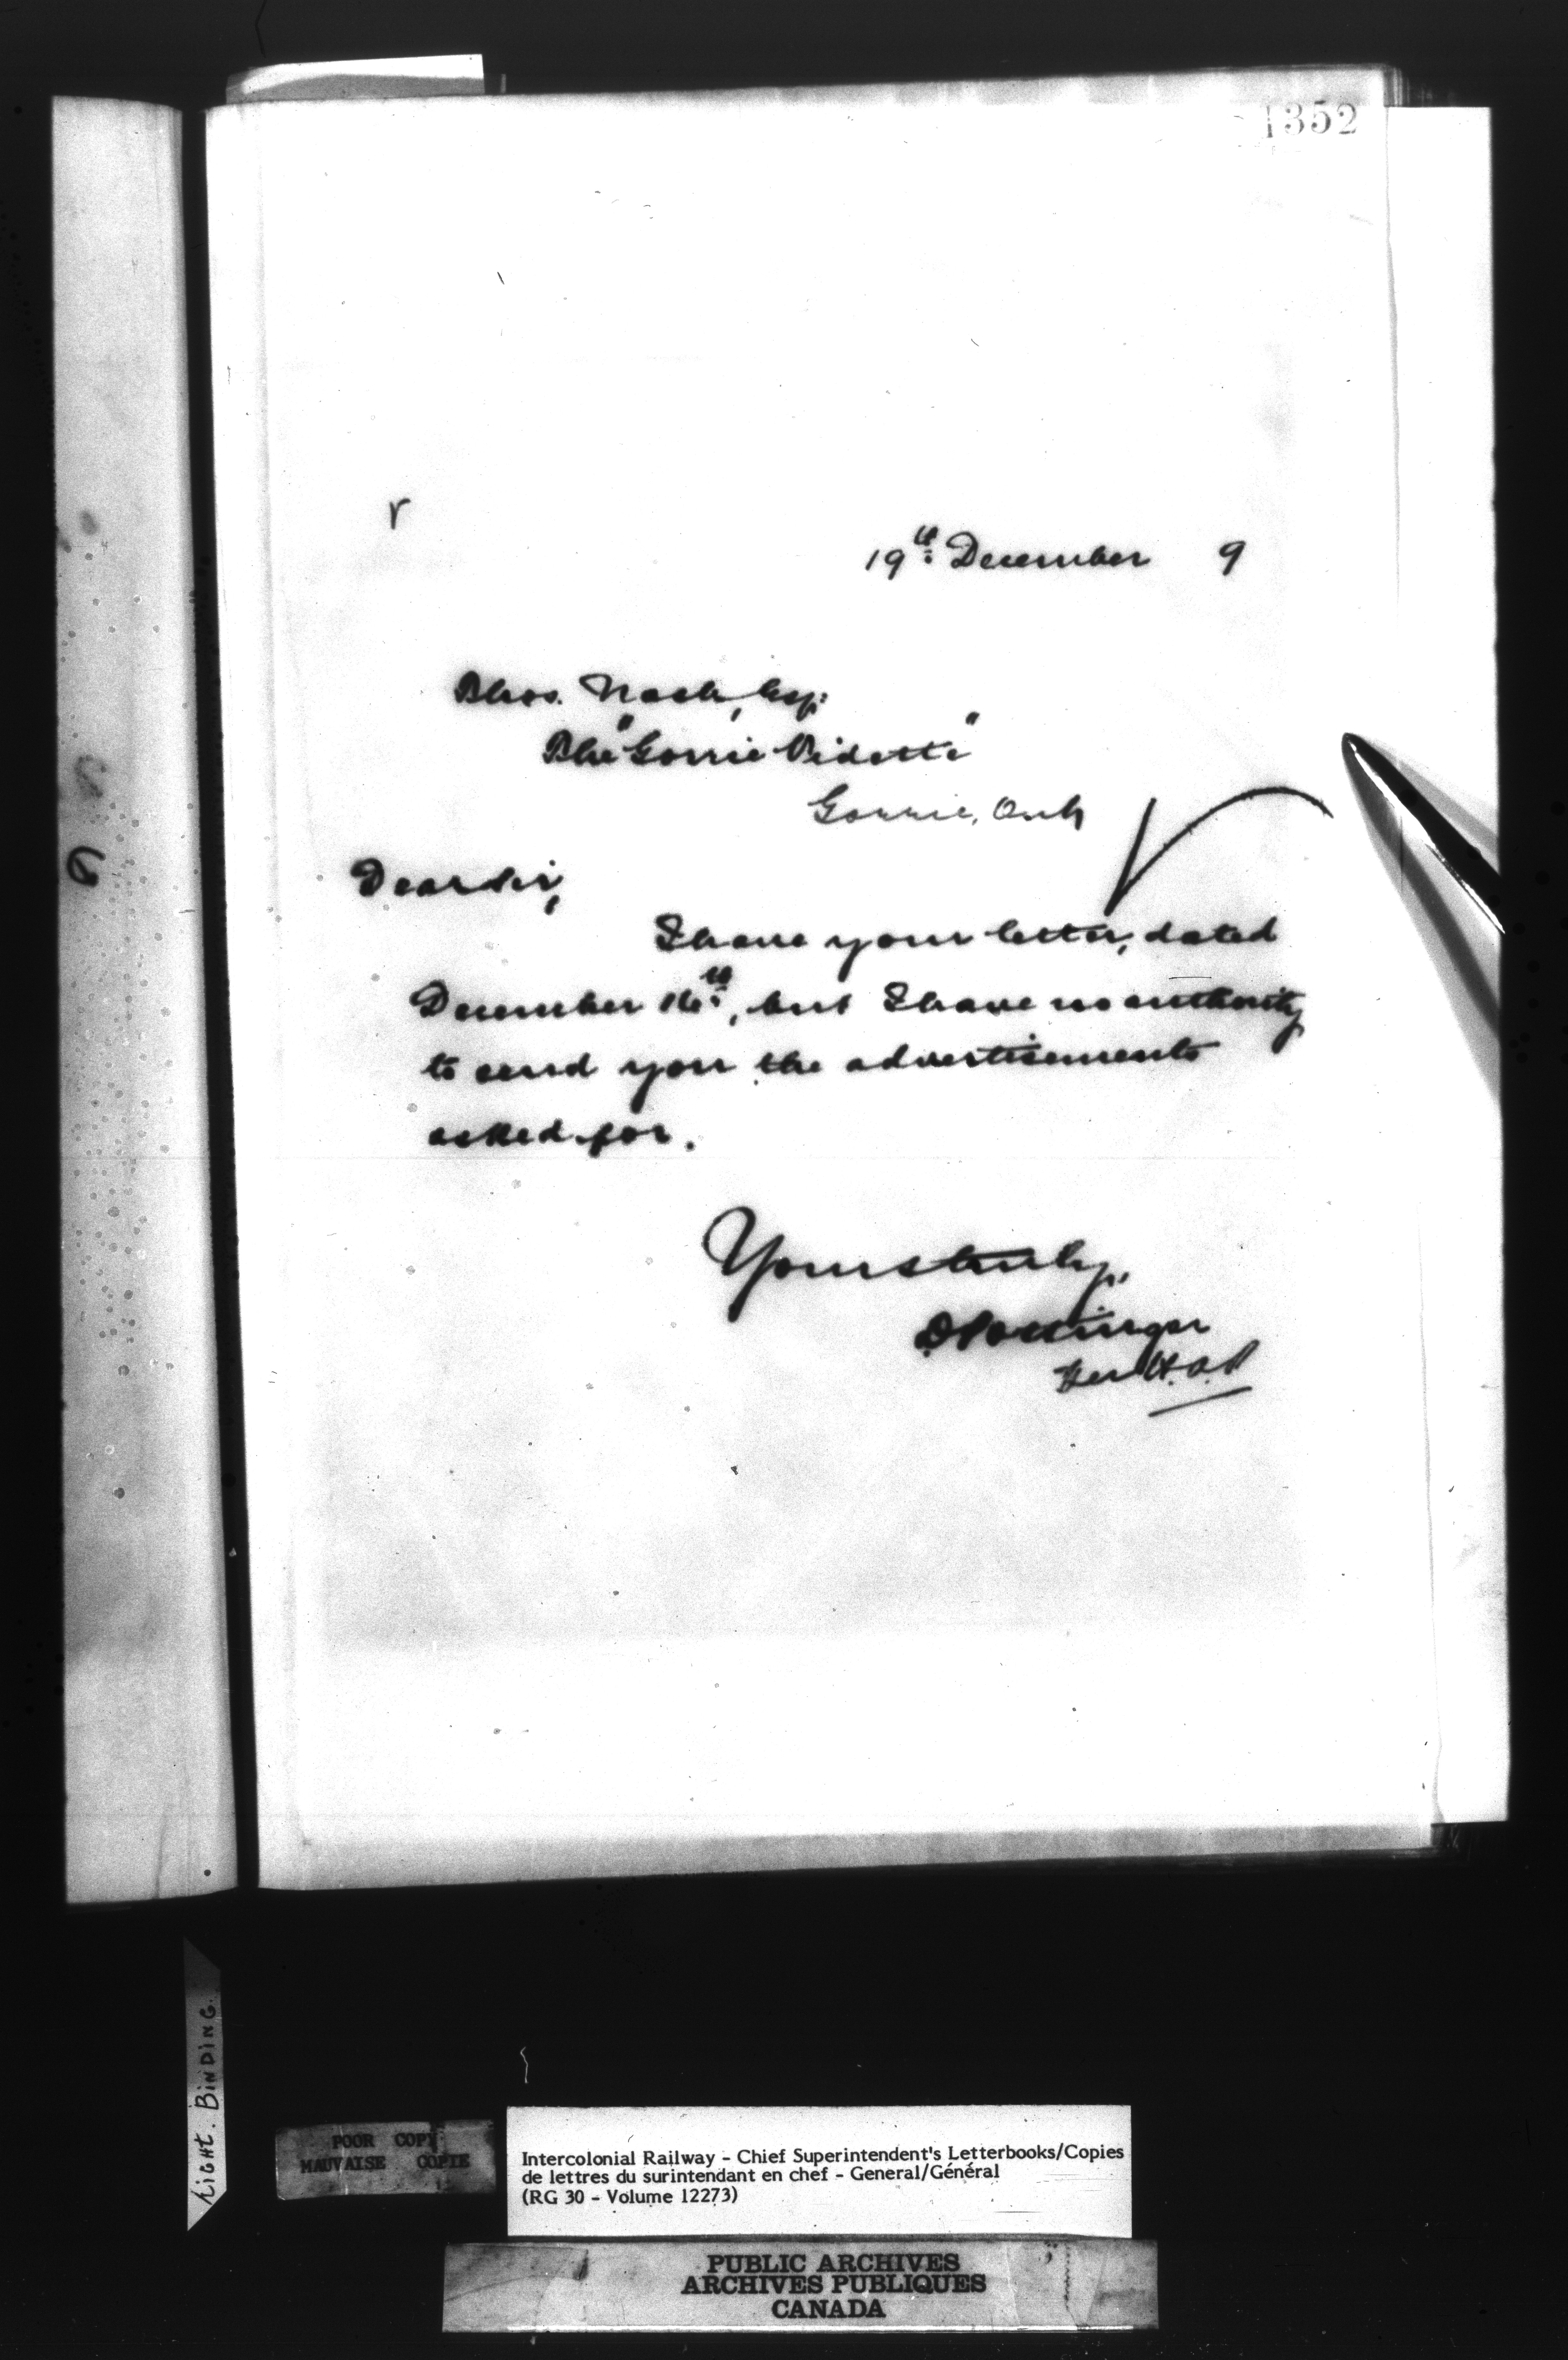 1352
r
19th December 9
Thos. Nash, Esq:
The "Gorrie Vidette"
Gorrie, Ont
Dear Sir,
I have your letter, dated
December 16th, but I have no authority
to send you the advertisements
asked for.
Yours truly,
D Pottinger
Per
LIGHT. BINDING.
POOR COPY
MAUVAISE COPIE
Intercolonial Railway - Chief Superintendent's Letterbooks/Copies
de lettres du surintendant en chef - General/Général
(RG 30 - Volume 12273)
PUBLIC ARCHIVES
ARCHIVES PUBLIQUES
CANADA